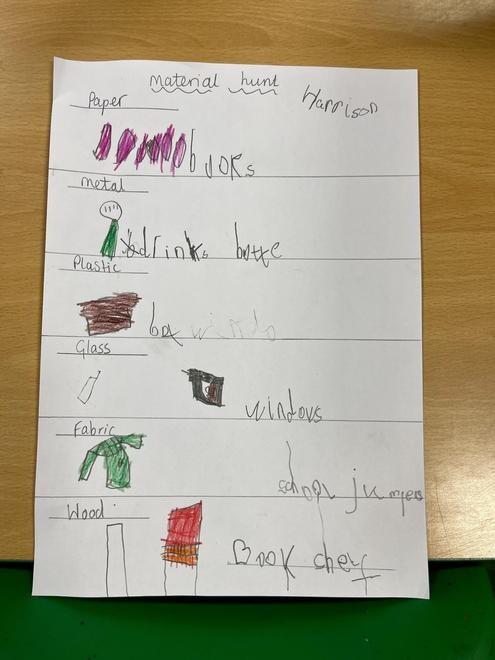 material hunt
Harrison
Paper
books
metal
drinks botte
Plastic
box windo
Glass
windows
Fabric
school jumpers
Wood
Book shelf